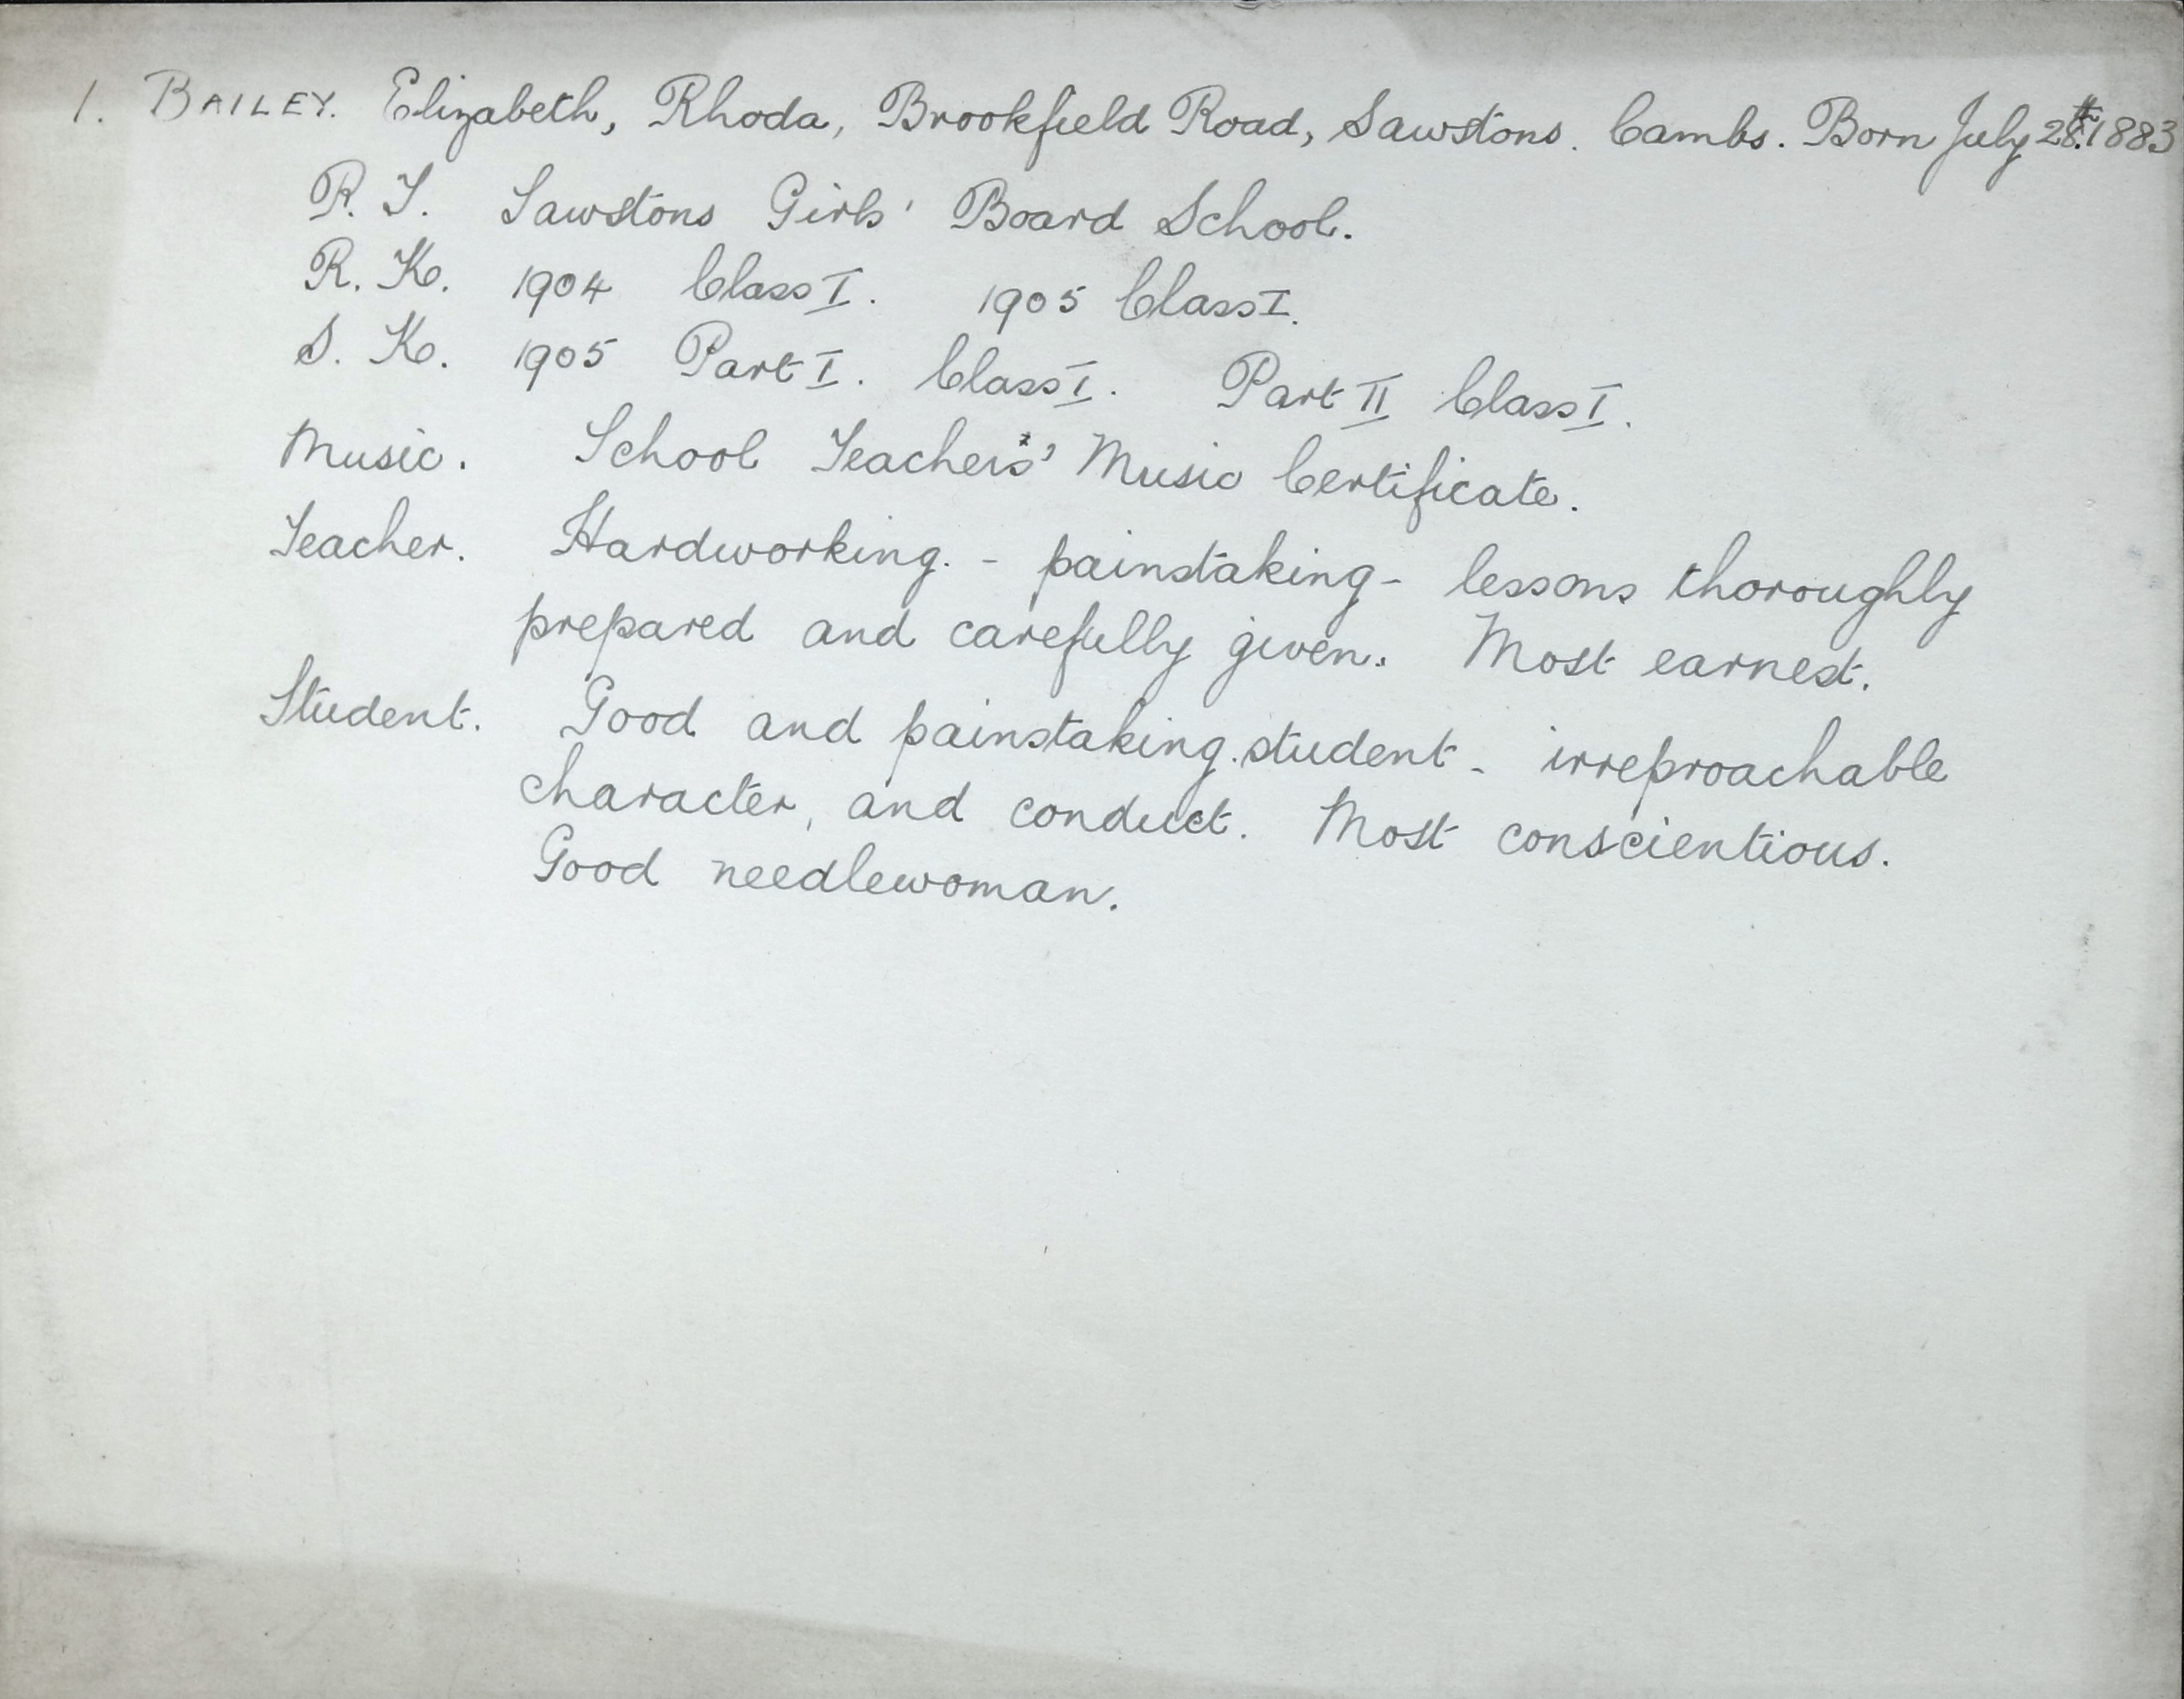 1. BAILEY. Elizabeth, Rhoda, Brookfield Road, Sawstons. Cambs. Born July 28th. 1883
P. T. Sawstons Girls' Board School.
R. K. 1904 Class I. 1905 Class I.
S. K. 1905 Part I. Class I. Part II Class I.
Music. School Teachers' Music Certificate.
Teacher. Hardworking. - painstaking - lessons thoroughly
prepared and carefully given. Most earnest.
Student. Good and painstaking student - irreproachable
character, and conduct. Most conscientious.
Good needlewoman.